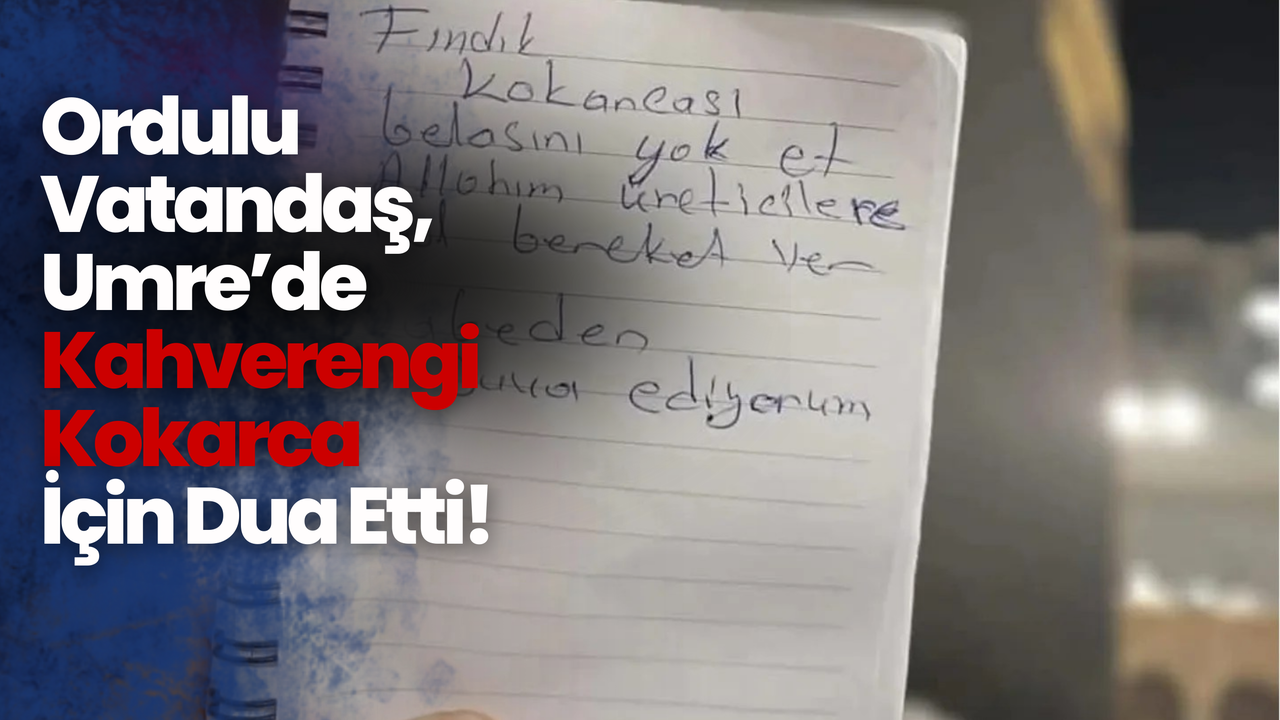 Ordulu
Vatandaş,
Umre’de
Kahverengi
Kokarca
İçin Dua Etti!
Fındık
kokancası
belasını yok et
Allahım üreticilere
bereket ver
ediyorum